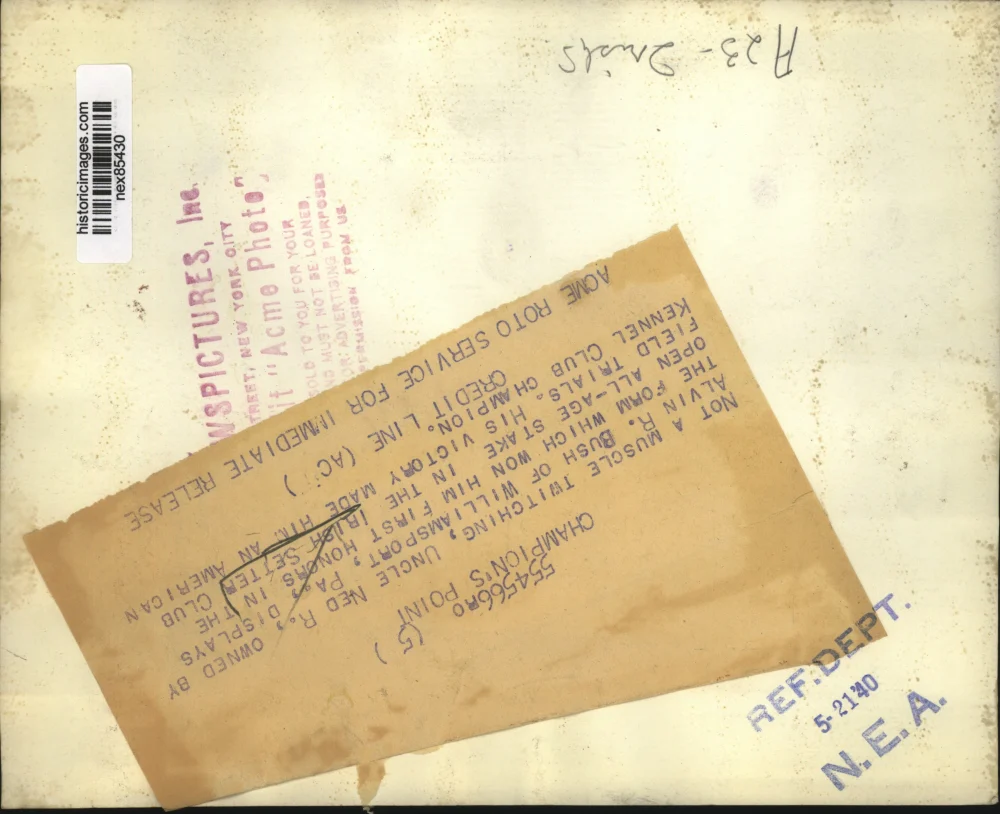 A23-
historicimages.com
nex85430
WSPICTURES, Inc.
TREET, NEW YORK CITY
it "Acme Photo"
SOLD TO YOU FOR YOUR
ND MUST NOT BE LOANED,
OR ADVERTISING PURPOSES
ERMISSION FROM US.
554566RO (5)
CHAMPION'S POINT
NOT A MUSCLE TWITCHING, UNCLE NED R., OWNED BY
ALVIN R. BUSH OF WILLIAMSPORT, PA., DISPLAYS
THE FORM WHICH WON HIM FIRST HONORS IN THE
OPEN ALL-AGE STAKE IN THE IRISH SETTER CLUB
FIELD TRIALS. HIS VICTORY MADE HIM AN AMERICAN
KENNEL CLUB CHAMPION.
CREDIT LINE (AC )
ACME ROTO SERVICE FOR IMMEDIATE RELEASE
REF. DEPT.
5-21'40
N.E.A.